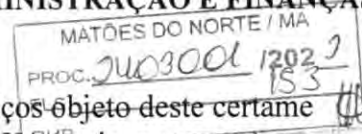 MINISTRAÇÃO E FINANÇAS
MATÕES DO NORTE / MA
PROC. 2403001 /2023
153
ços objeto deste certame